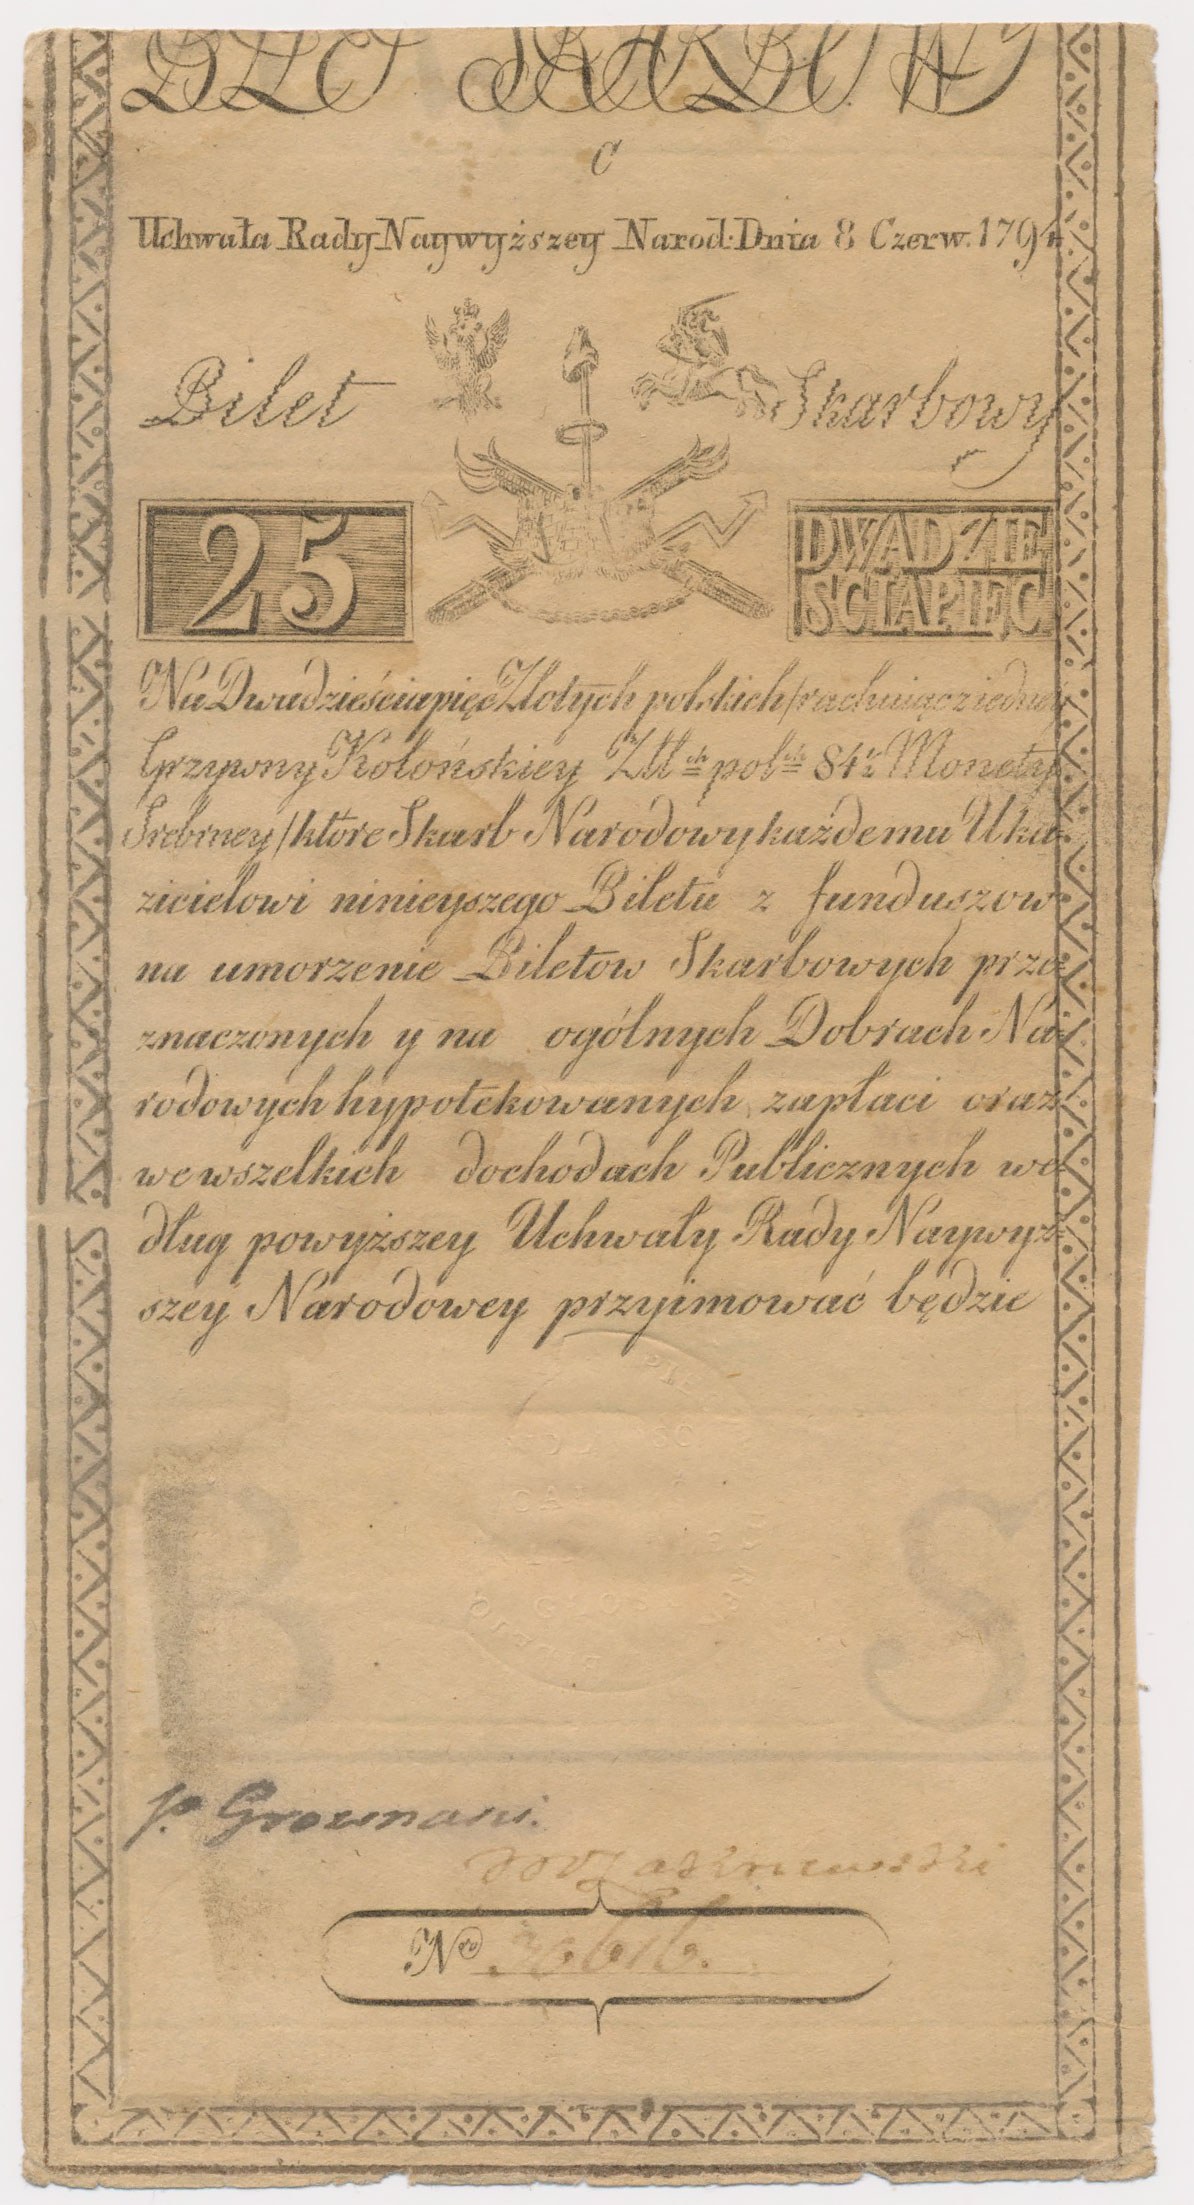 BILET SKARBOWY
C
Uchwała Rady Naywyższey Narod: Dnia 8 Czerw. 1794
Bilet Skarbowy
25 DWADZIE
SCIAPIEC
Na Dwudzieściapięć Złotych polskich/rachuiąc z iedney
Grzywny Kolońskiey Złł ch pol ch 84½ Monety
Srebrney/które Skarb Narodowy każdemu Uka
zicielowi ninieyszego Biletu z funduszow
na umorzenie Biletow Skarbowych prze
znaczonych y na ogólnych Dobrach Na
rodowych hypotekowanych zapłaci oraz
we wszelkich dochodach Publicznych we
dług powyższey Uchwały Rady Naywyż
szey Narodowey przyimować będzie
B S
p. Grozmani.
Nro